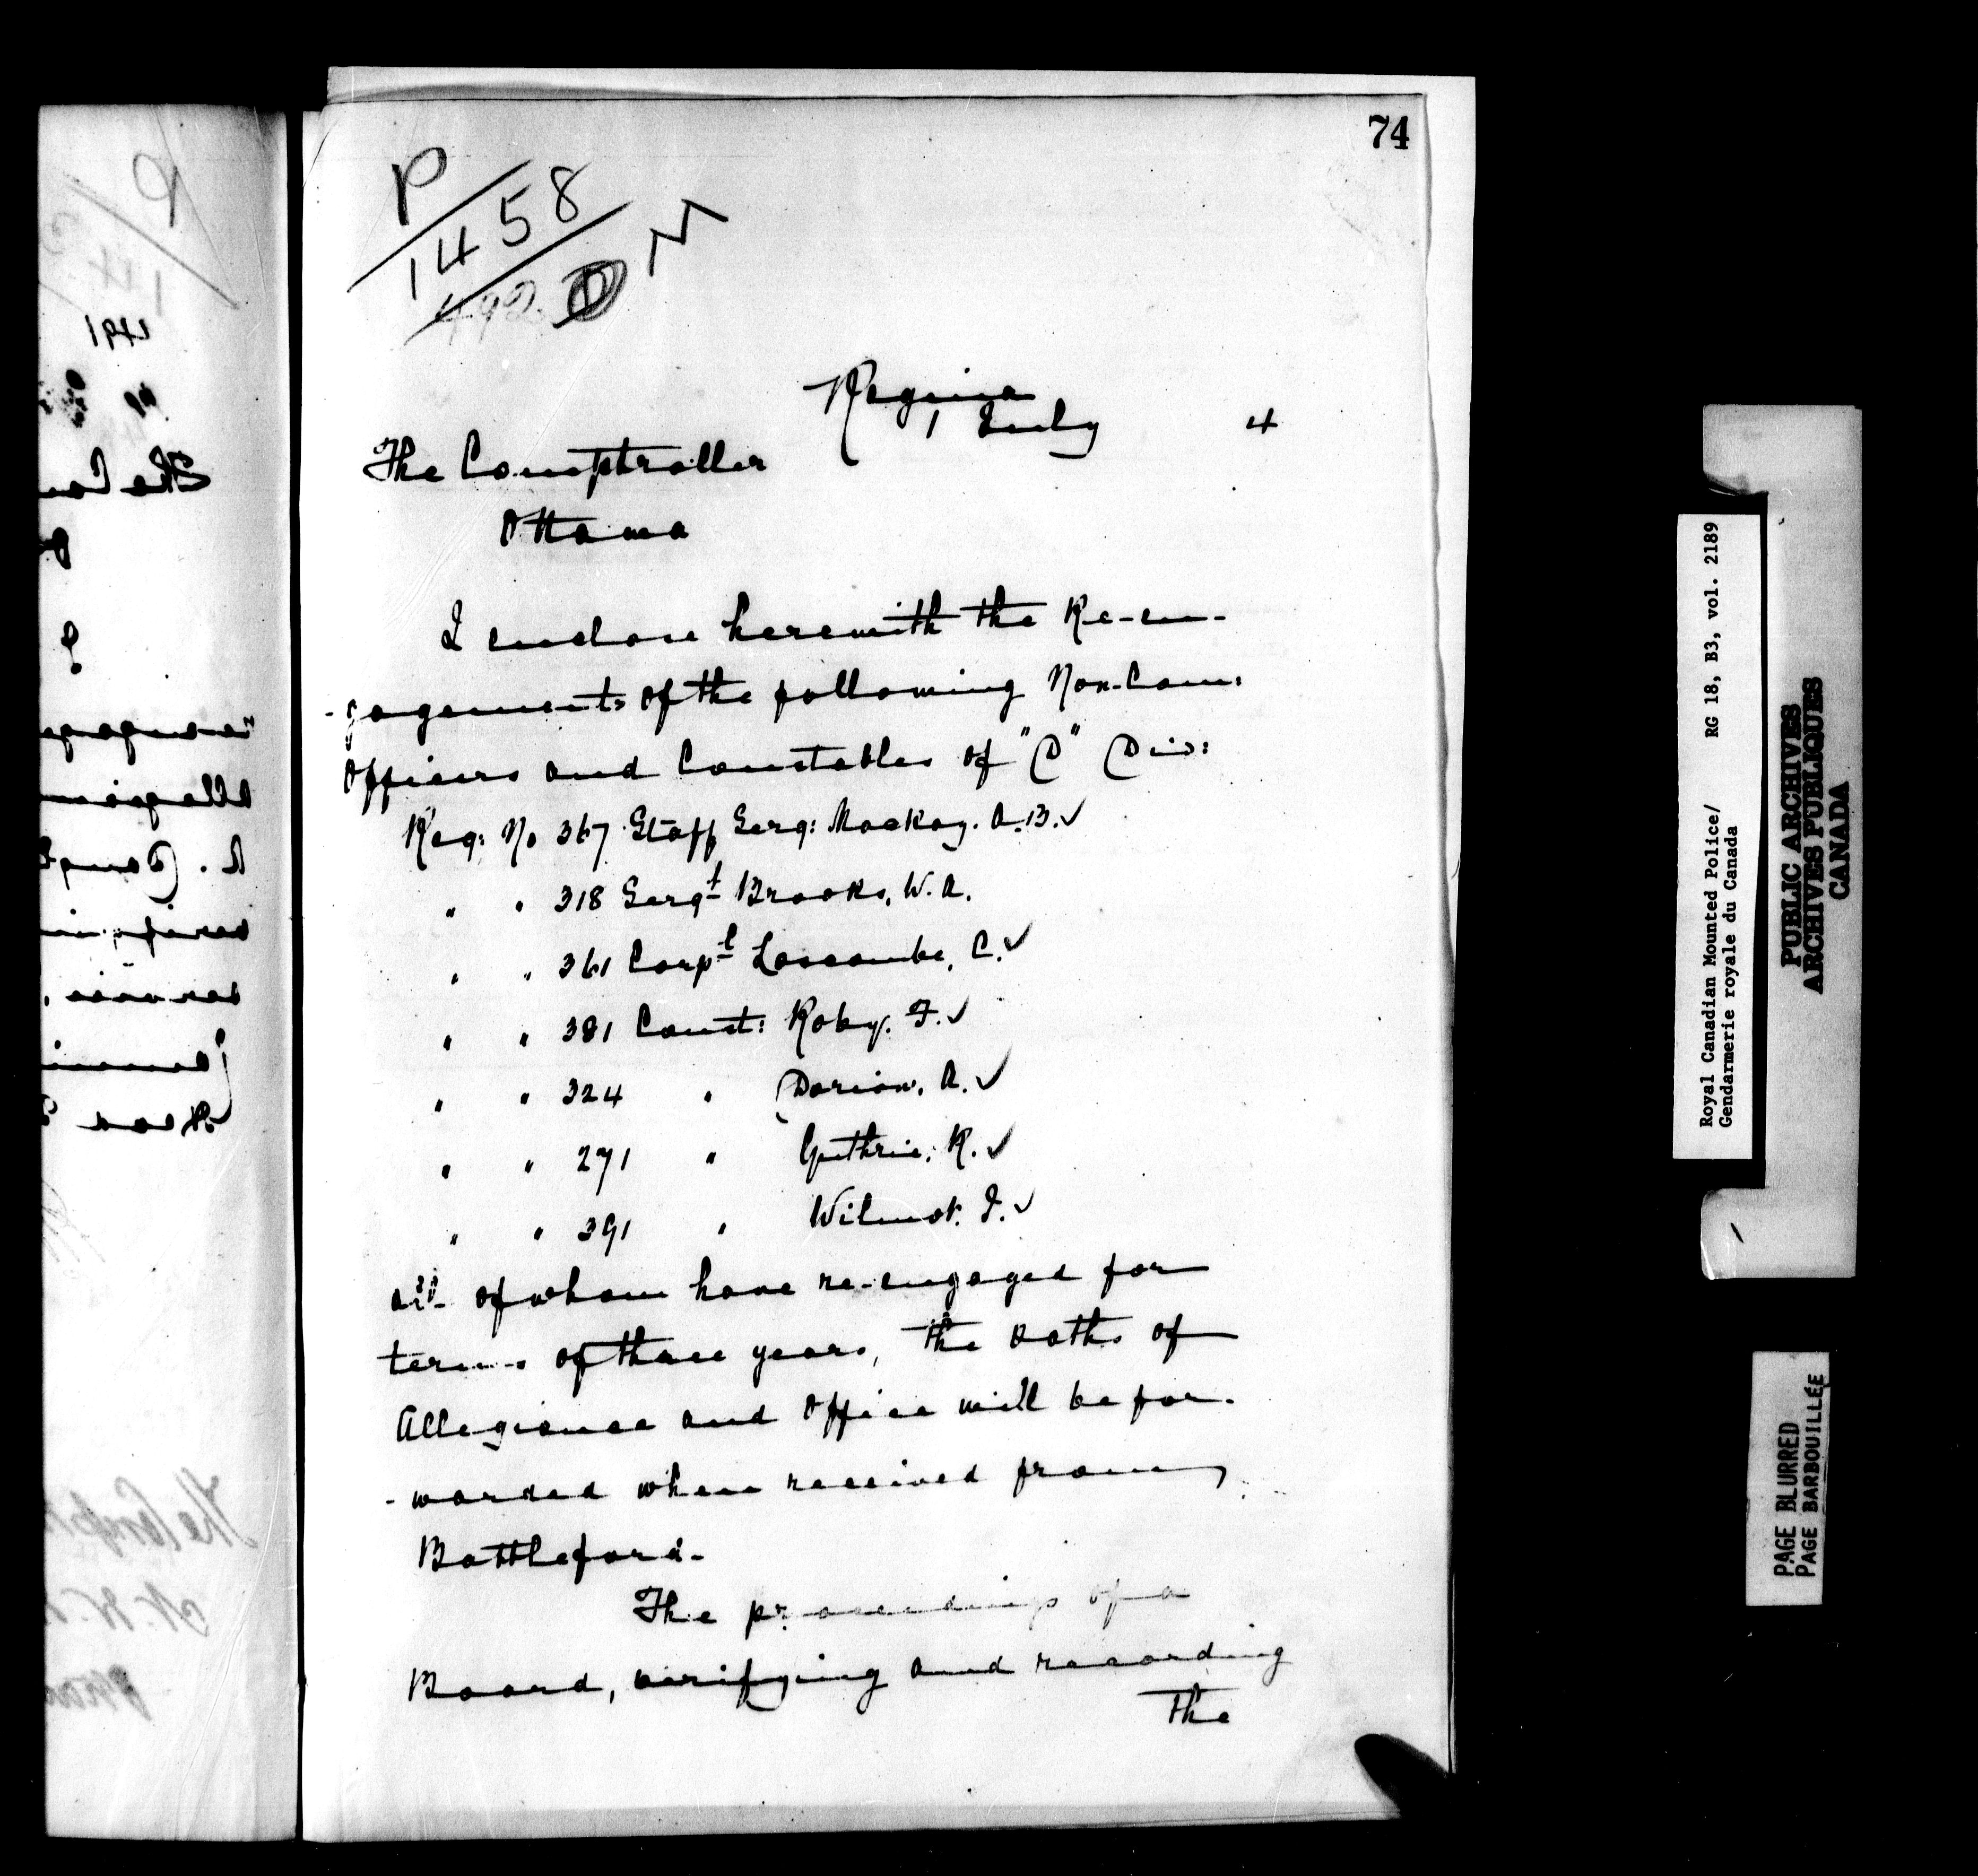 74
P
1458
492 D
N
Regina
1 July 4
The Comptroller
Ottawa
I enclose herewith the Re-en-
-gagements of the following Non-Com:
Officers and Constables of "D" Div:
Reg: No 367 Staff Serg: Mackay. A.B. ✓
" " 318 Sergt Brooks, W. A.
" " 361 Corpl Loscombe, C. ✓
" " 381 Const: Roby. F. ✓
" " 324 " Dorion, A. ✓
" " 271 " Guthrie, R. ✓
" " 391 " Wilmot. J. ✓
all of whom have re-engaged for
terms of three years, the Oaths of
Allegiance and Office will be for-
-warded when received from
Battleford-
The proceedings of a
Board, verifying and recording
the
Royal Canadian Mounted Police/ RG 18, B3, vol. 2189
Gendarmerie royale du Canada
PUBLIC ARCHIVES
ARCHIVES PUBLIQUES
CANADA
PAGE BLURRED
PAGE BARBOUILLÉE